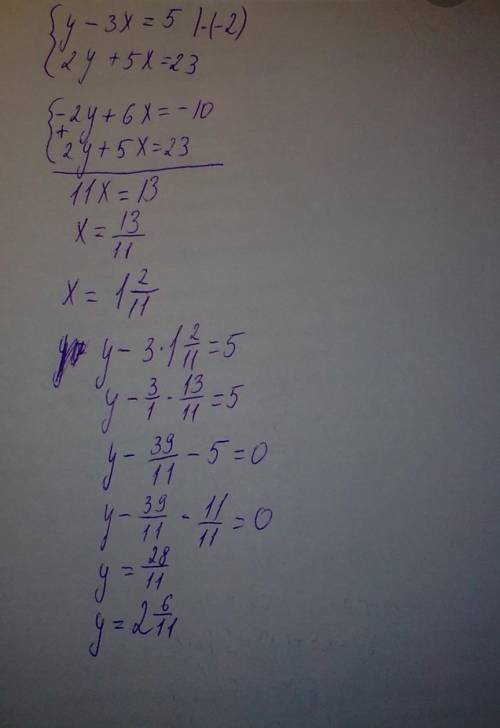 { y - 3x = 5 |·(-2)
2y + 5x = 23
{ -2y + 6x = -10
+
2y + 5x = 23
11x = 13
x = 13/11
x = 1 2/11
y - 3 · 1 2/11 = 5
y - 3/1 · 13/11 = 5
y - 39/11 - 5 = 0
y - 39/11 - 11/11 = 0
y = 28/11
y = 2 6/11